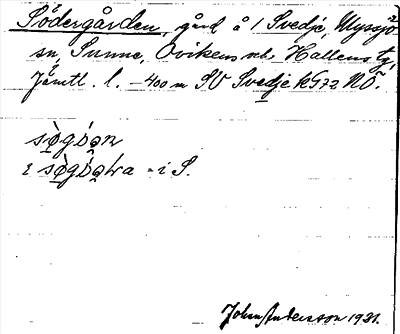 Södergården, gård å 1 Svedje, Myssjö
sn, Sunne, Ovikens och Hallens tg,
Jämtl. l. – 400 m SV Svedje k572 NÖ.
i S.
John Andersson 1931.